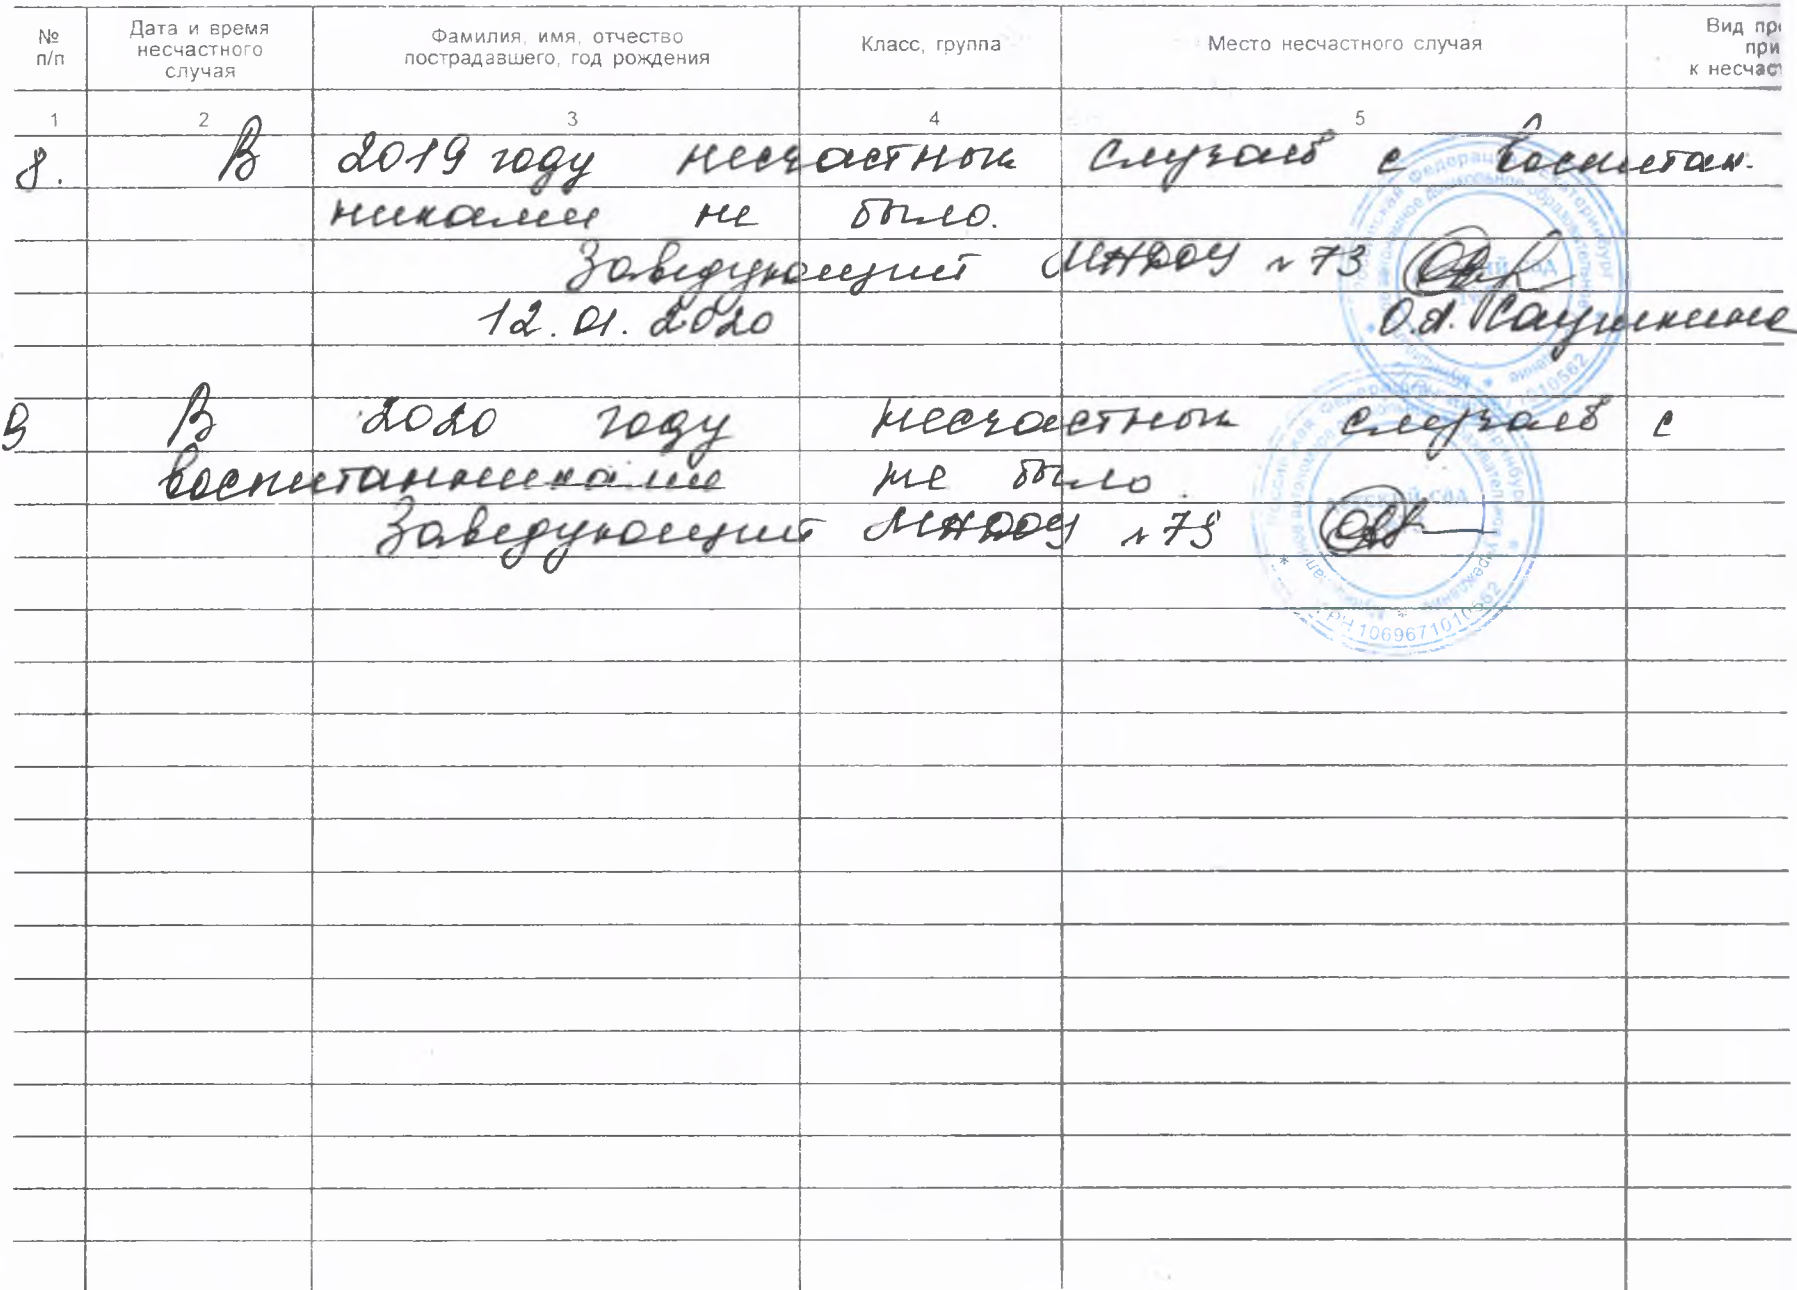 № п/п
Дата и время несчастного случая
Фамилия, имя, отчество пострадавшего, год рождения
Класс, группа
Место несчастного случая
Вид при к несчаст
1 2 3 4 5
8. В 2019 году несчастных случаев с воспитан-
никами не было.
Заведующий МАДОУ № 73
12.01.2020 О.А.
9 В 2020 году несчастных случаев с
воспитанниками не было.
Заведующий МАДОУ № 73
ДЕТСКИЙ САД
1069671010562